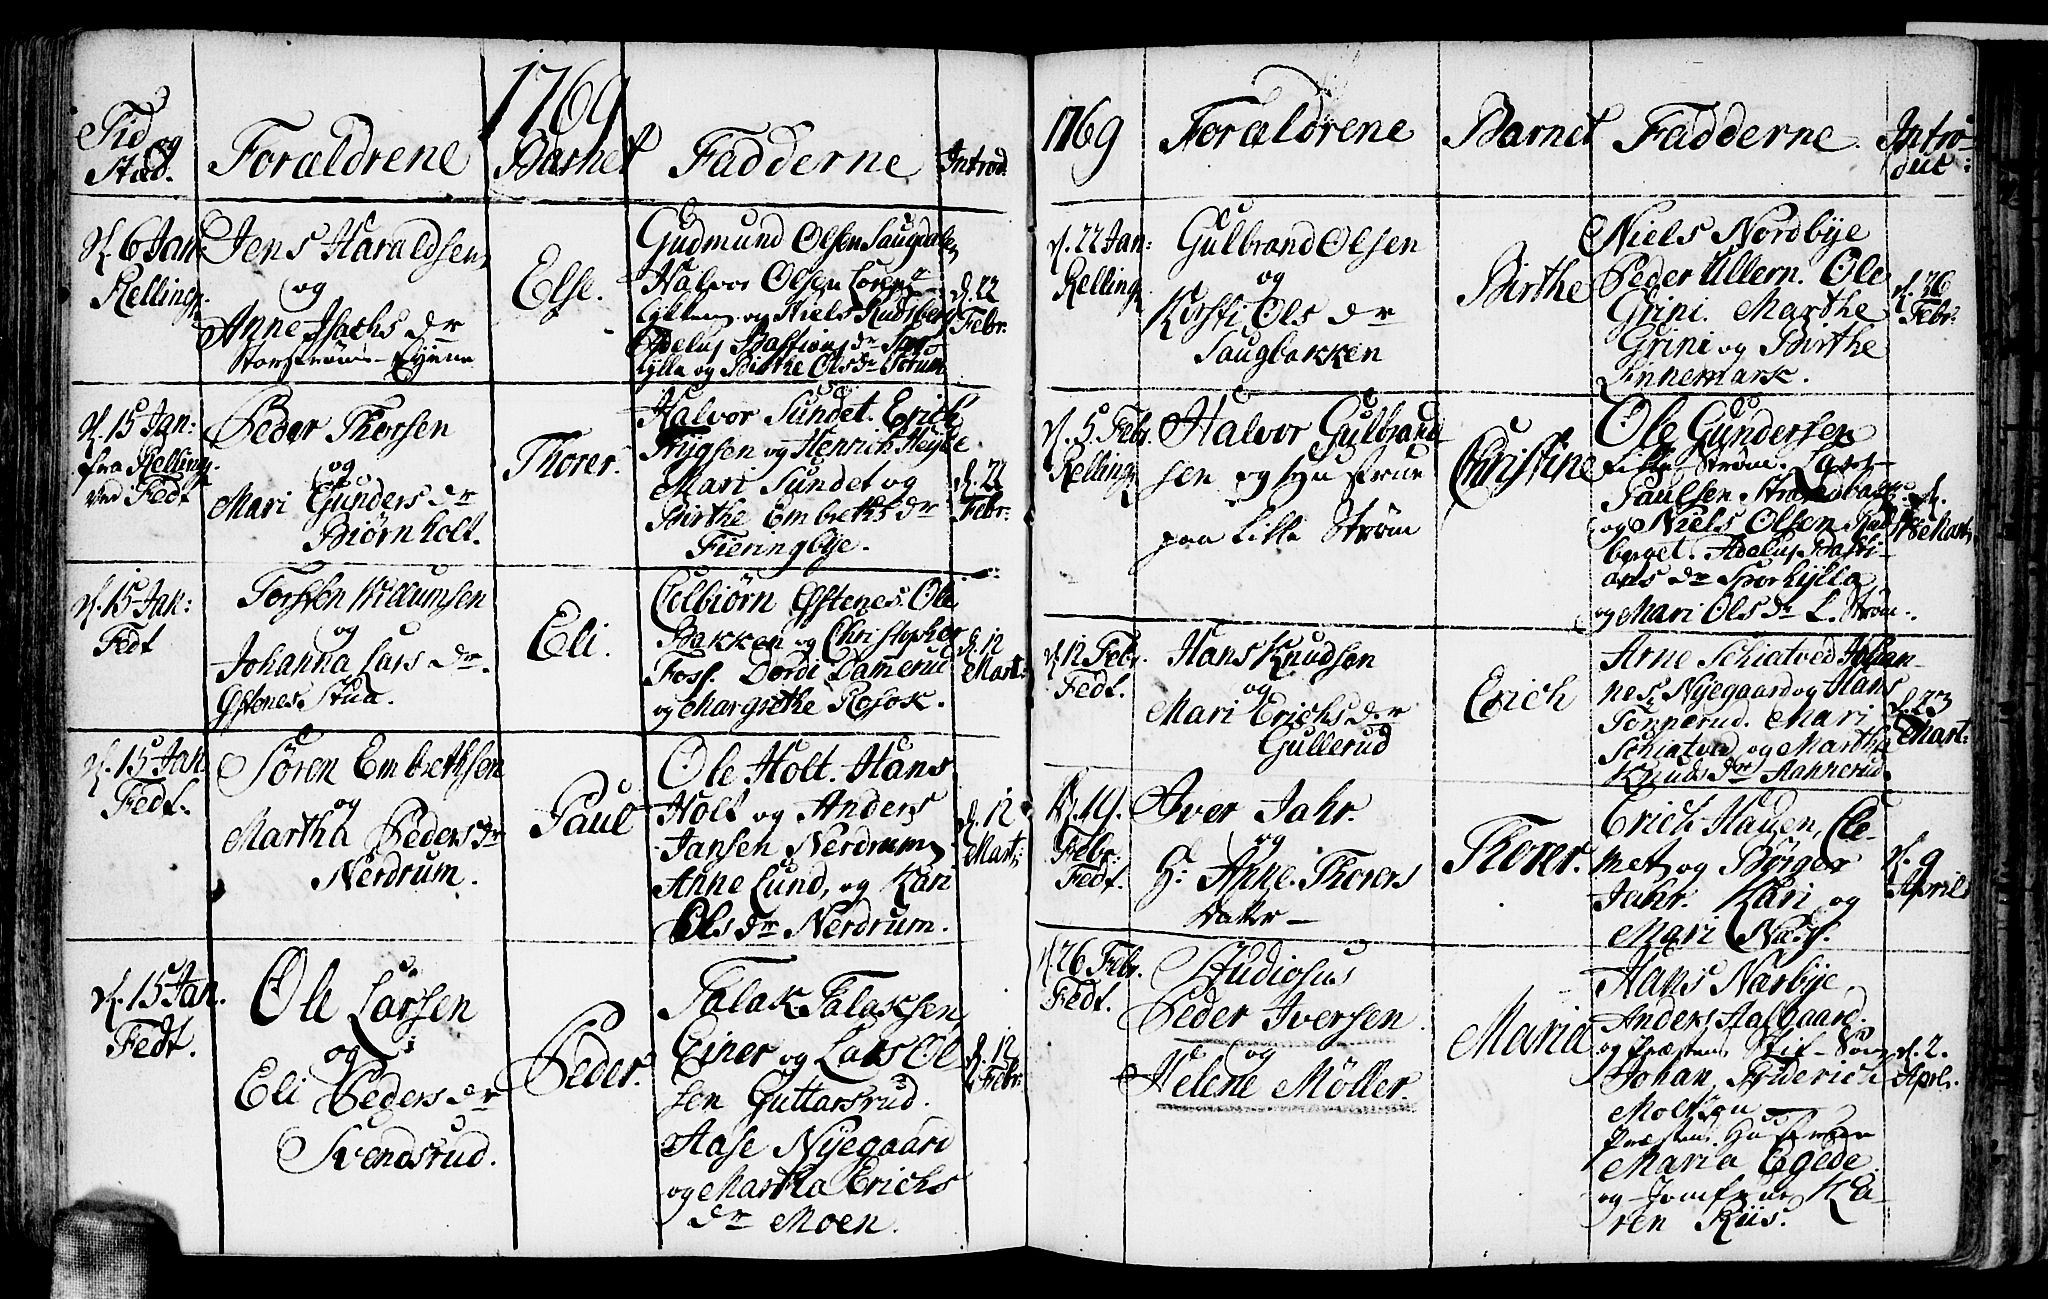 1769
Tid og Stæd.
Forældrene
Barnet
Fadderne
Introd.
d. 6 Jan:
Kelling.
Jens Haraldsen
og
Anne Isachs dr
Storstrøms-Eyene
Else.
Gudmund Olsen Saugdalen
Halvor Olsen
og Niels Rudsberg
Adelus Bastians dr
og Birthe Ols dr
d. 22
Febr:
d. 15 Jan:
fra Kelling.
ved Fedt
Peder Thorsen
og
Mari Gunders dr
Biørnholt.
Thorer.
Halvor Sundet. Erich
Trygsen og Henrich Heyke.
Mari Sundet og
Birthe Embreths dr
Fieringbye.
d. 22
Febr:
d. 15 Jan:
Fedt
Torsten
og
Johanna Lars dr.
Østenes Stua.
Eli.
Colbiørn Østenes. Ole
Bakken og Christopher
Foss. Dordi Damerud
og Margrethe Rosok.
d. 12
Mart:
d. 15 Jan
Fedt.
Søren Embrethsen
og
Martha Peders dr
Nerdrum.
Paul
Ole Holt. Hans
Holt og Anders
Jansen Nerdrum
Anne Lund, og Kari
Ols dr Nerdrum.
d. 12
Mart:
d. 15 Jan.
Fedt.
Ole Larsen
og
Eli Peders dr
Svendsrud.
Peder.
Talak Talaksen
Einer og Lars Ol
sen Guttorsrud.
Aase Nyegaard
og Martha Erichs
dr Moen.
d. 12
Febr:
1769
Forældrene
Barnet
Fadderne
Intro-
duc:
d. 22 Jan:
Kelling.
Gulbrand Olsen
og
Kirsti Ols dr
Saugbakken
Birthe
Niels Nordbye
Peder Ullern. Ole
Grini. Marthe
Grini og Birthe
Linnemark.
d. 26
Febr:
d. 5 Febr.
Kelling
Halvor Gulbrand
sen og Hustrue
paa Lille Strøm
Christine
Ole Gundersen
Lille-Strøm.
Paulsen Strandbak
og Niels Olsen Rud
berget. Adelus Basti-
ans dr Sporkylla
og Mari Ols dr L. Strøm.
d.
Mart:
d. 12 Febr.
Fedt.
Hans Knudsen
og
Mari Erichs dr
Gullerud
Erich
Arne Schiatved Johan-
nes Nyegaard og Hans
Tonnerud. Mari
Schiatved og Martha
Knuds dr
d. 23
Mart:
d. 19.
Febr:
Fedt.
Iver Jahr.
og
H: Anne Thorers
dater
Thorer.
Erich Haugen, Cle-
met og Børger
Jahr. Kari og
Mari Næss.
d. 9
April
d. 26 Febr.
Fedt.
Studiosus
Peder Iversen
og
Helene Möller.
Maria
Hans Narbye,
Anders Aasgaard.
og Præstens Stif-Søn
Johan Friderich
Moltzau
Præstens Hustrue
Maria Egede.
og Jomfrue Ka-
ren Riis.
d. 2.
April.